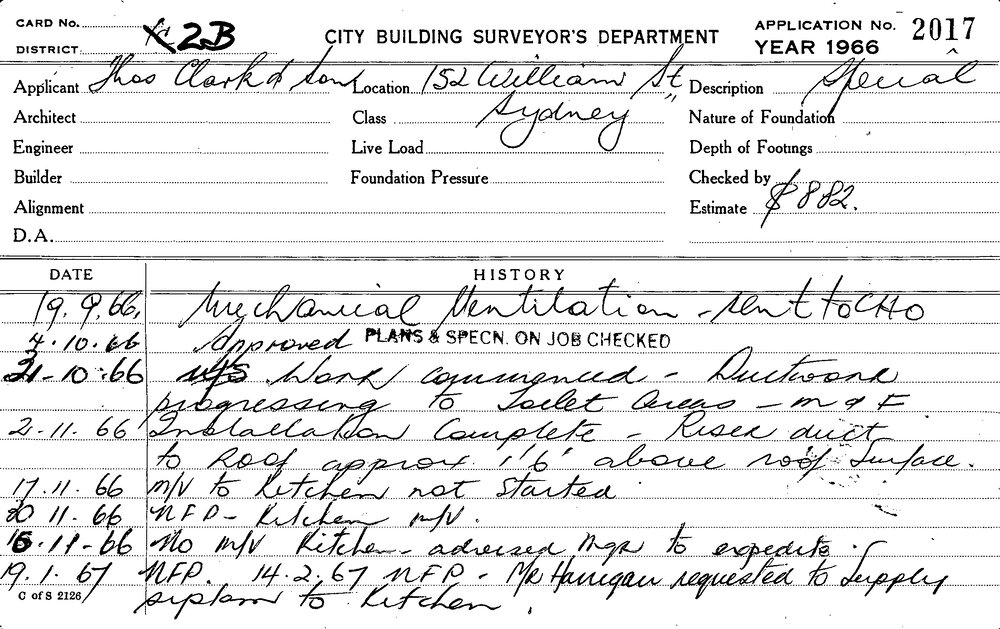 CARD No. 2B
DISTRICT
CITY BUILDING SURVEYOR'S DEPARTMENT
APPLICATION No. 2017
YEAR 1966
Applicant Thos Clark & Son Location 152 William St, Description Special
Architect Class Sydney Nature of Foundation
Engineer Live Load Depth of Footings
Builder Foundation Pressure Checked by
Alignment Estimate $882.
D.A.
DATE HISTORY
19.9.66, Mechanical Ventilation - sent to CHO
4.10.66 Approved PLANS & SPECN. ON JOB CHECKED
21-10-66 Work commenced - Ductwork
progressing to Toilet Areas - M & F
2-11.66 Installation Complete - Riser duct
to Roof approx. 1'6" above roof surface.
17.11.66 m/v to Kitchen not started
30 11.66 NFP - Kitchen m/v.
-66 No m/v Kitchen - advised Mgr to expedite.
19.1.67 NFP. 14.2.67 NFP - Mr Hanigan requested to supply
C of S 2126 system to Kitchen.